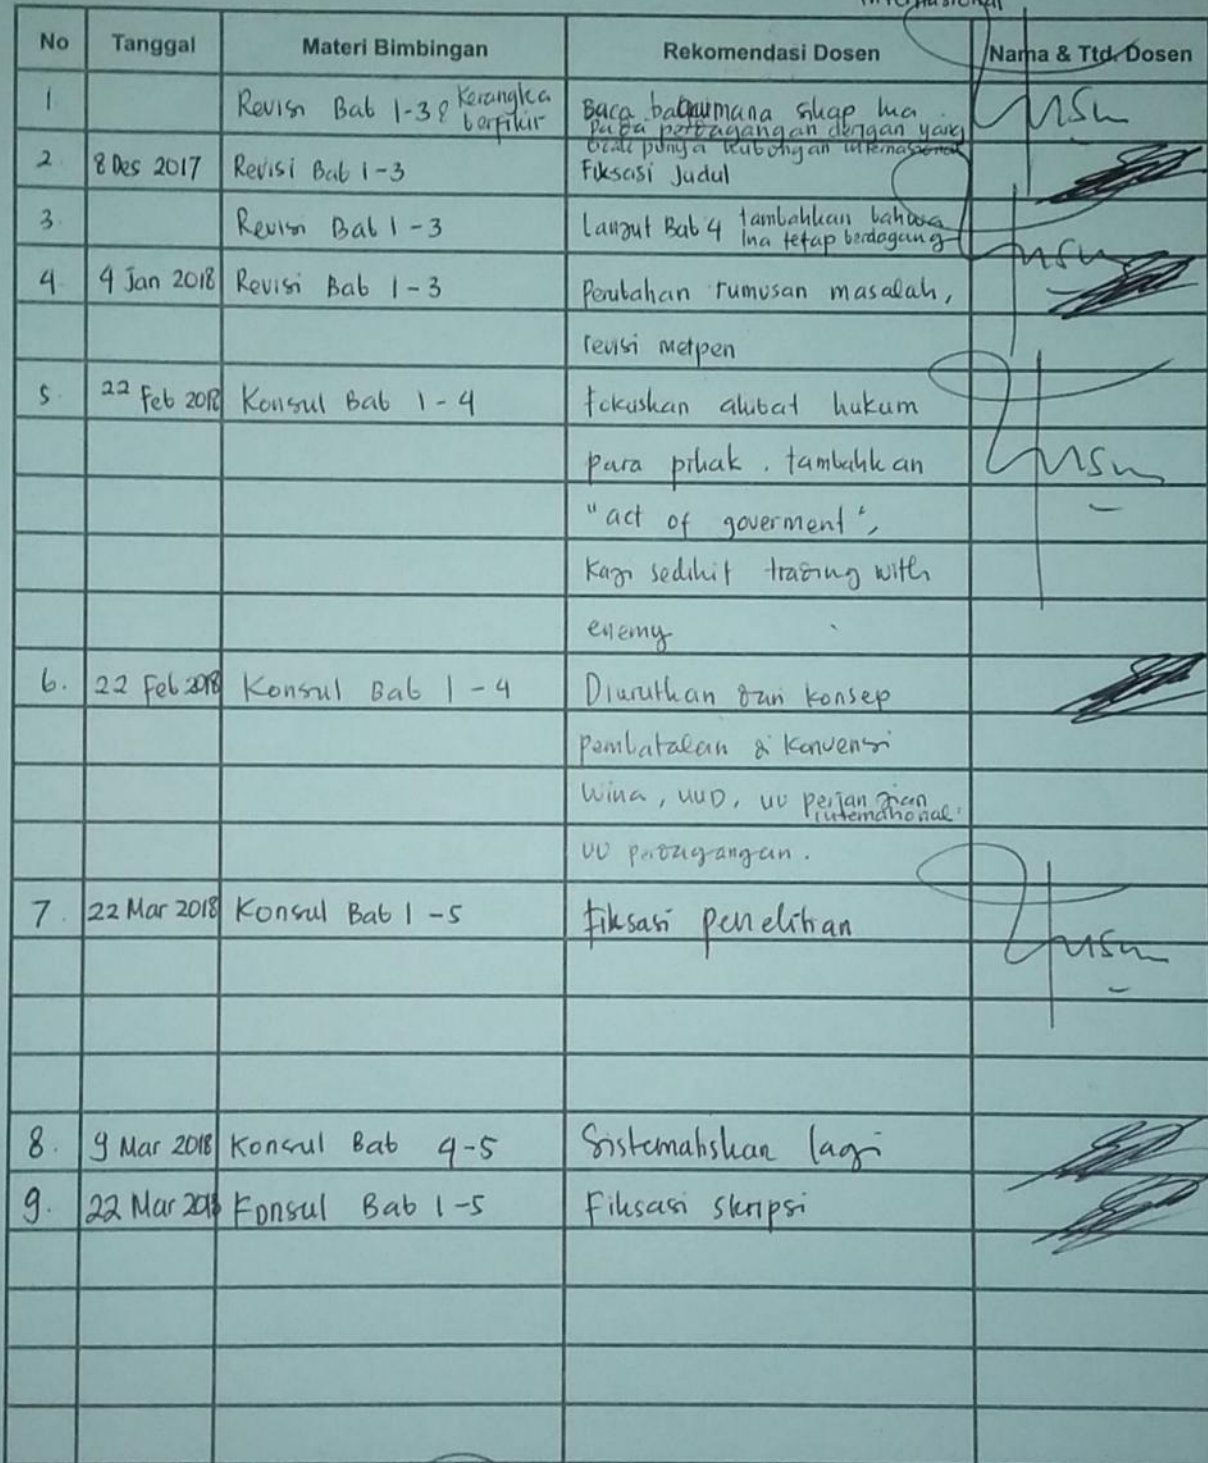 No Tanggal Materi Bimbingan Rekomendasi Dosen Nama & Ttd. Dosen
1 Revisi Bab 1-3 & Kerangka berfikir Baca bagaimana sikap Ina
pada perdagangan dengan yang
punya hubongan internasional
2 8 Des 2017 Revisi Bab 1-3 Fiksasi Judul
3. Revisi Bab 1-3 Lanjut Bab 4 tambahkan bahwa
Ina tetap berdagang
4. 4 Jan 2018 Revisi Bab 1-3 Perubahan rumusan masalah,
revisi metpen
5. 22 Feb 2018 Konsul Bab 1-4 Fokuskan akibat hukum
para pihak. tambahkan
"act of goverment",
Kaji sedikit trading with
enemy
6. 22 Feb 2018 Konsul Bab 1-4 Diurutkan dari konsep
pembatalan di Konvensi
Wina, UUD, UU perjanjian
internasional.
UU perdagangan.
7. 22 Mar 2018 Konsul Bab 1-5 Fiksasi penelitian
8. 9 Mar 2018 Konsul Bab 4-5 Sistematiskan lagi
9. 22 Mar 2018 Konsul Bab 1-5 Fiksasi skripsi